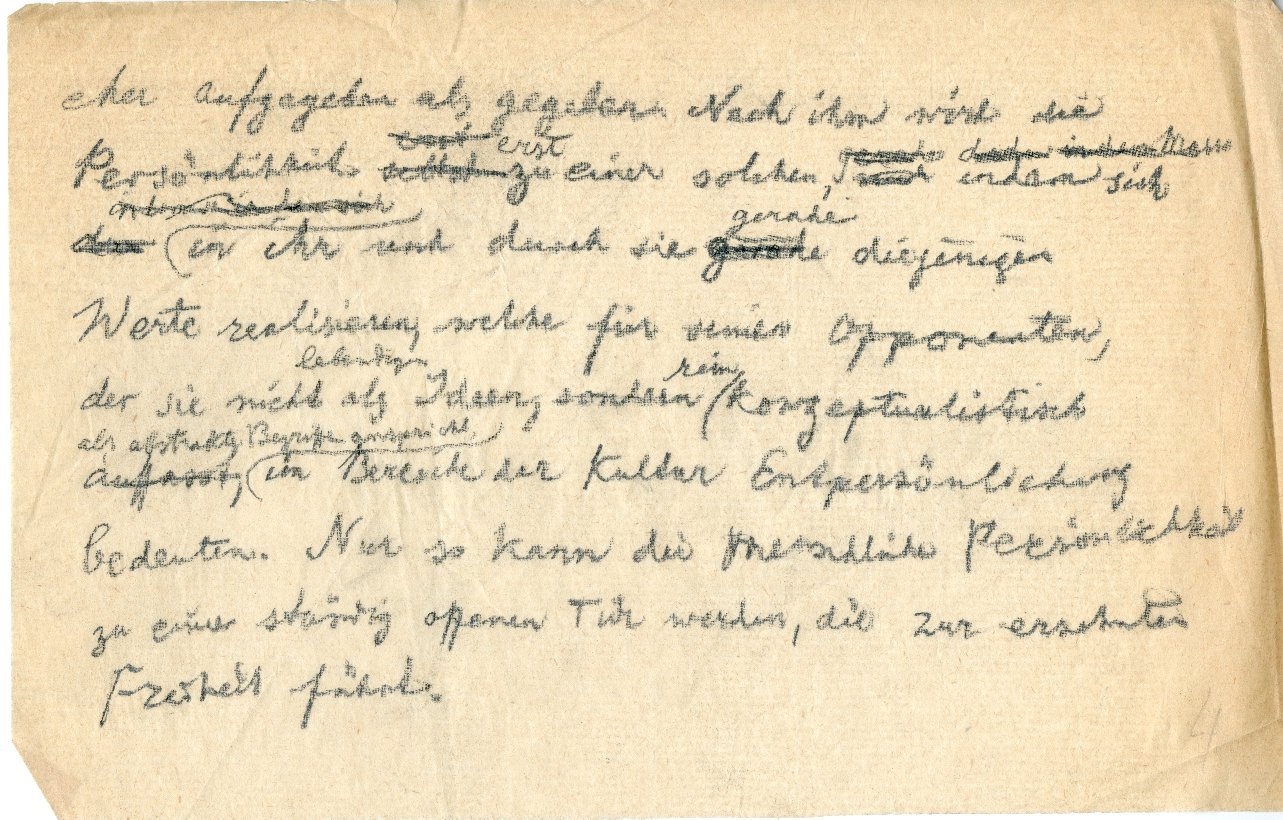 eher aufgegeben als gegeben. Nach ihm wird die
erst
Persönlichkeit selbst zu einer solchen, indem sich
gerade
in ihr und durch sie gerade diejenigen
Werte realisieren, welche für seinen Opponenten,
lebendigen rein
der sie nicht als Ideen, sondern konzeptualistisch
als abstrakte Begriffe anspricht,
auffasst, im Bereiche der Kultur Entpersönlichung
bedeuten. Nur so kann die menschliche Persönlichkeit
zu einer ständig offenen Tür werden, die zur ersehnten
Freiheit führt.
4